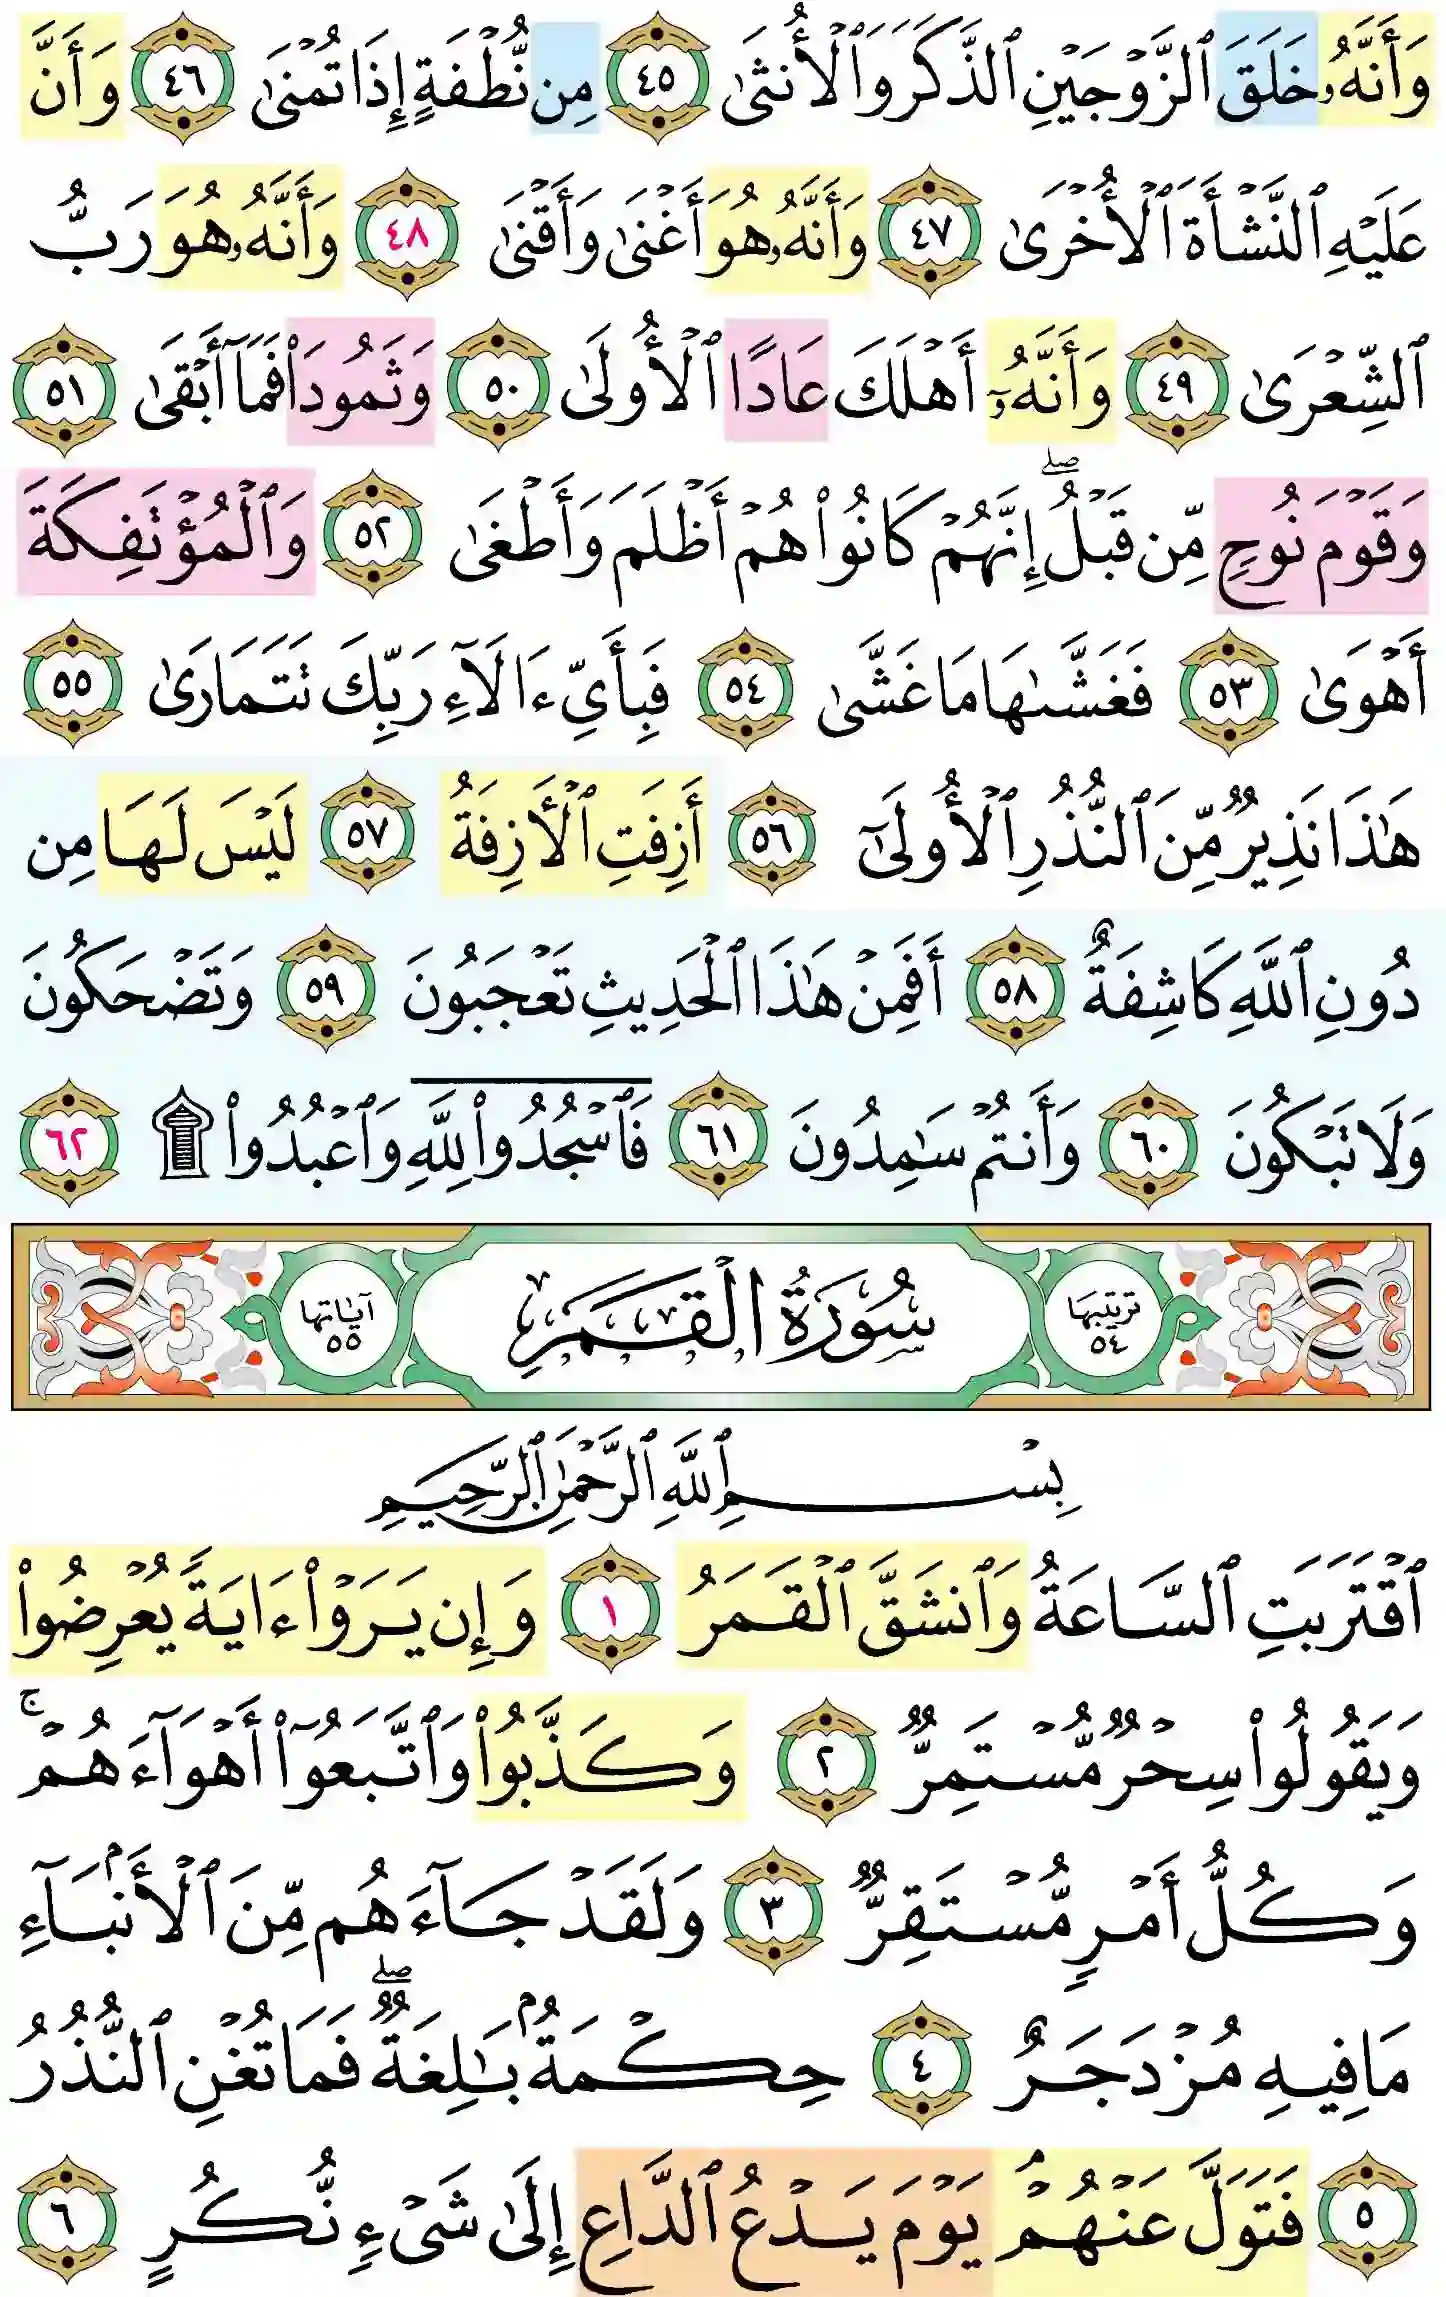 وَأَنَّهُۥ خَلَقَ ٱلزَّوۡجَيۡنِ ٱلذَّكَرَ وَٱلۡأُنثَىٰ ٤٥ مِن نُّطۡفَةٍ إِذَا تُمۡنَىٰ ٤٦ وَأَنَّ
عَلَيۡهِ ٱلنَّشۡأَةَ ٱلۡأُخۡرَىٰ ٤٧ وَأَنَّهُۥ هُوَ أَغۡنَىٰ وَأَقۡنَىٰ ٤٨ وَأَنَّهُۥ هُوَ رَبُّ
ٱلشِّعۡرَىٰ ٤٩ وَأَنَّهُۥٓ أَهۡلَكَ عَادًا ٱلۡأُولَىٰ ٥٠ وَثَمُودَاْ فَمَآ أَبۡقَىٰ ٥١
وَقَوۡمَ نُوحٖ مِّن قَبۡلُۖ إِنَّهُمۡ كَانُواْ هُمۡ أَظۡلَمَ وَأَطۡغَىٰ ٥٢ وَٱلۡمُؤۡتَفِكَةَ
أَهۡوَىٰ ٥٣ فَغَشَّىٰهَا مَا غَشَّىٰ ٥٤ فَبِأَيِّ ءَالَآءِ رَبِّكَ تَتَمَارَىٰ ٥٥
هَٰذَا نَذِيرٞ مِّنَ ٱلنُّذُرِ ٱلۡأُولَىٰٓ ٥٦ أَزِفَتِ ٱلۡأٓزِفَةُ ٥٧ لَيۡسَ لَهَا مِن
دُونِ ٱللَّهِ كَاشِفَةٌ ٥٨ أَفَمِنۡ هَٰذَا ٱلۡحَدِيثِ تَعۡجَبُونَ ٥٩ وَتَضۡحَكُونَ
وَلَا تَبۡكُونَ ٦٠ وَأَنتُمۡ سَٰمِدُونَ ٦١ فَٱسۡجُدُواْ لِلَّهِ وَٱعۡبُدُواْ ۩ ٦٢
ترتيبها ٥٤ سُورَةُ ٱلۡقَمَرِ آياتها ٥٥
بِسۡمِ ٱللَّهِ ٱلرَّحۡمَٰنِ ٱلرَّحِيمِ
ٱقۡتَرَبَتِ ٱلسَّاعَةُ وَٱنشَقَّ ٱلۡقَمَرُ ١ وَإِن يَرَوۡاْ ءَايَةٗ يُعۡرِضُواْ
وَيَقُولُواْ سِحۡرٞ مُّسۡتَمِرّٞ ٢ وَكَذَّبُواْ وَٱتَّبَعُوٓاْ أَهۡوَآءَهُمۡۚ
وَكُلُّ أَمۡرٖ مُّسۡتَقِرّٞ ٣ وَلَقَدۡ جَآءَهُم مِّنَ ٱلۡأَنۢبَآءِ
مَا فِيهِ مُزۡدَجَرٌ ٤ حِكۡمَةُۢ بَٰلِغَةٞۖ فَمَا تُغۡنِ ٱلنُّذُرُ
٥ فَتَوَلَّ عَنۡهُمۡۘ يَوۡمَ يَدۡعُ ٱلدَّاعِ إِلَىٰ شَيۡءٖ نُّكُرٍ ٦